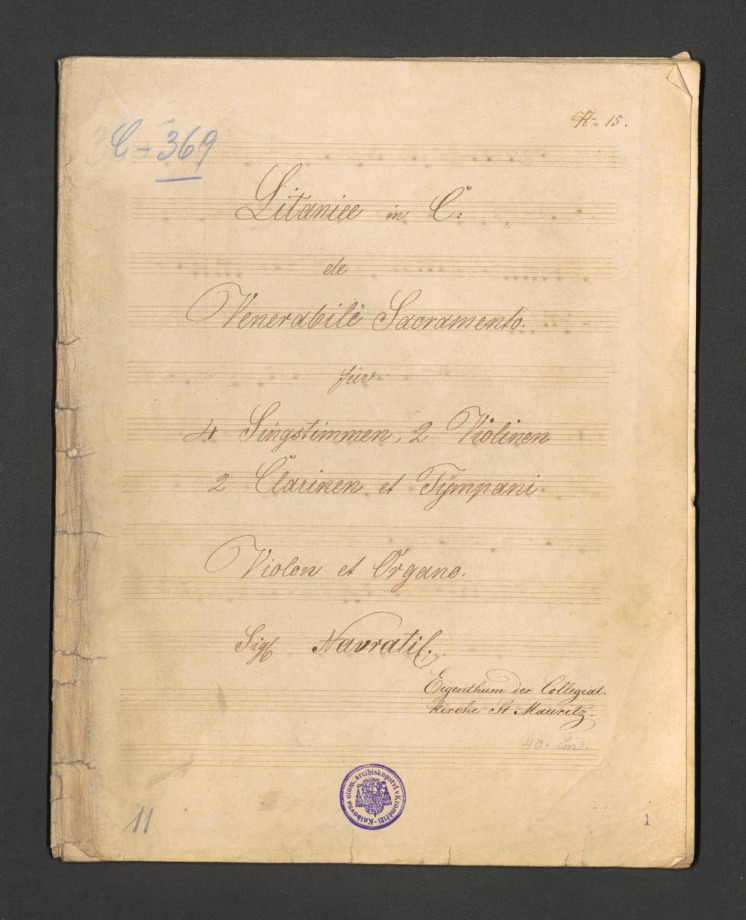 C-369
No 15.
Litaniee in C:
de
Venerabile Sacramento.
für
4 Singstimmen, 2 Violinen
2 Clarinen et Tympani
Violon et Organo.
Sigl Navratil.
Eigenthum der Collegiat-
kirche St Mauritz.
Knihovna olom. arcibiskupství v Kroměříži
11
1